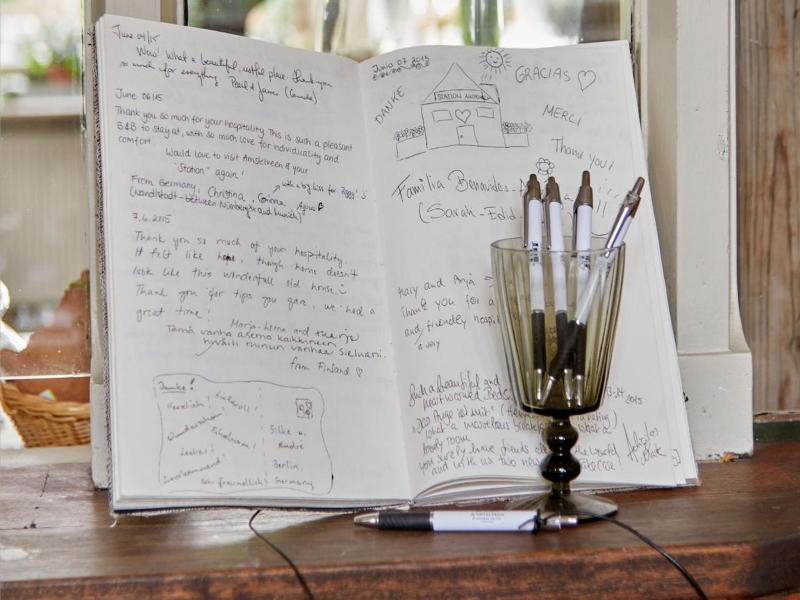 June 04/15
Wow! What a beautiful, restful place. Thank you
so much for everything. Paul & James (Canada)
June 06/15
Thank you so much for your hospitality. This is such a pleasant
B&B to stay at, with so much love for individuality and
comfort.
Would love to visit Amstelveen & your
"Station" again!
with a big kiss for Ziggy!
From Germany, Christina, Corinna
(Wandlstadt - between Nürnberg and Munich)
7.6.2015
Thank you so much of your hospitality.
It felt like home, though home doesn't
look like this wonderfull old house.
Thank you for tips you gave, we had a
great time!
Marja-Leena and
Tämä vanha asema kaikkineen
hyväili minun vanhaa sieluani.
from Finland
Danke!
Herzlich! Liebevoll!
Wunderschön!
Erholsam!
Lecker!
Zuvorkommend!
Sehr freundlich!
Silke u.
André
Berlin,
Germany
Junio 07 2015
DANKE
STATION
GRACIAS
MERCI
Thank you!
Familia Benavides -
(Sarah - Edid
Mary and Anja
Thank you for a
and friendly
a very
Such a beautiful and
heartwormed
2015
what a marvelous
lovely room
you surely have friends all the world
and with us two